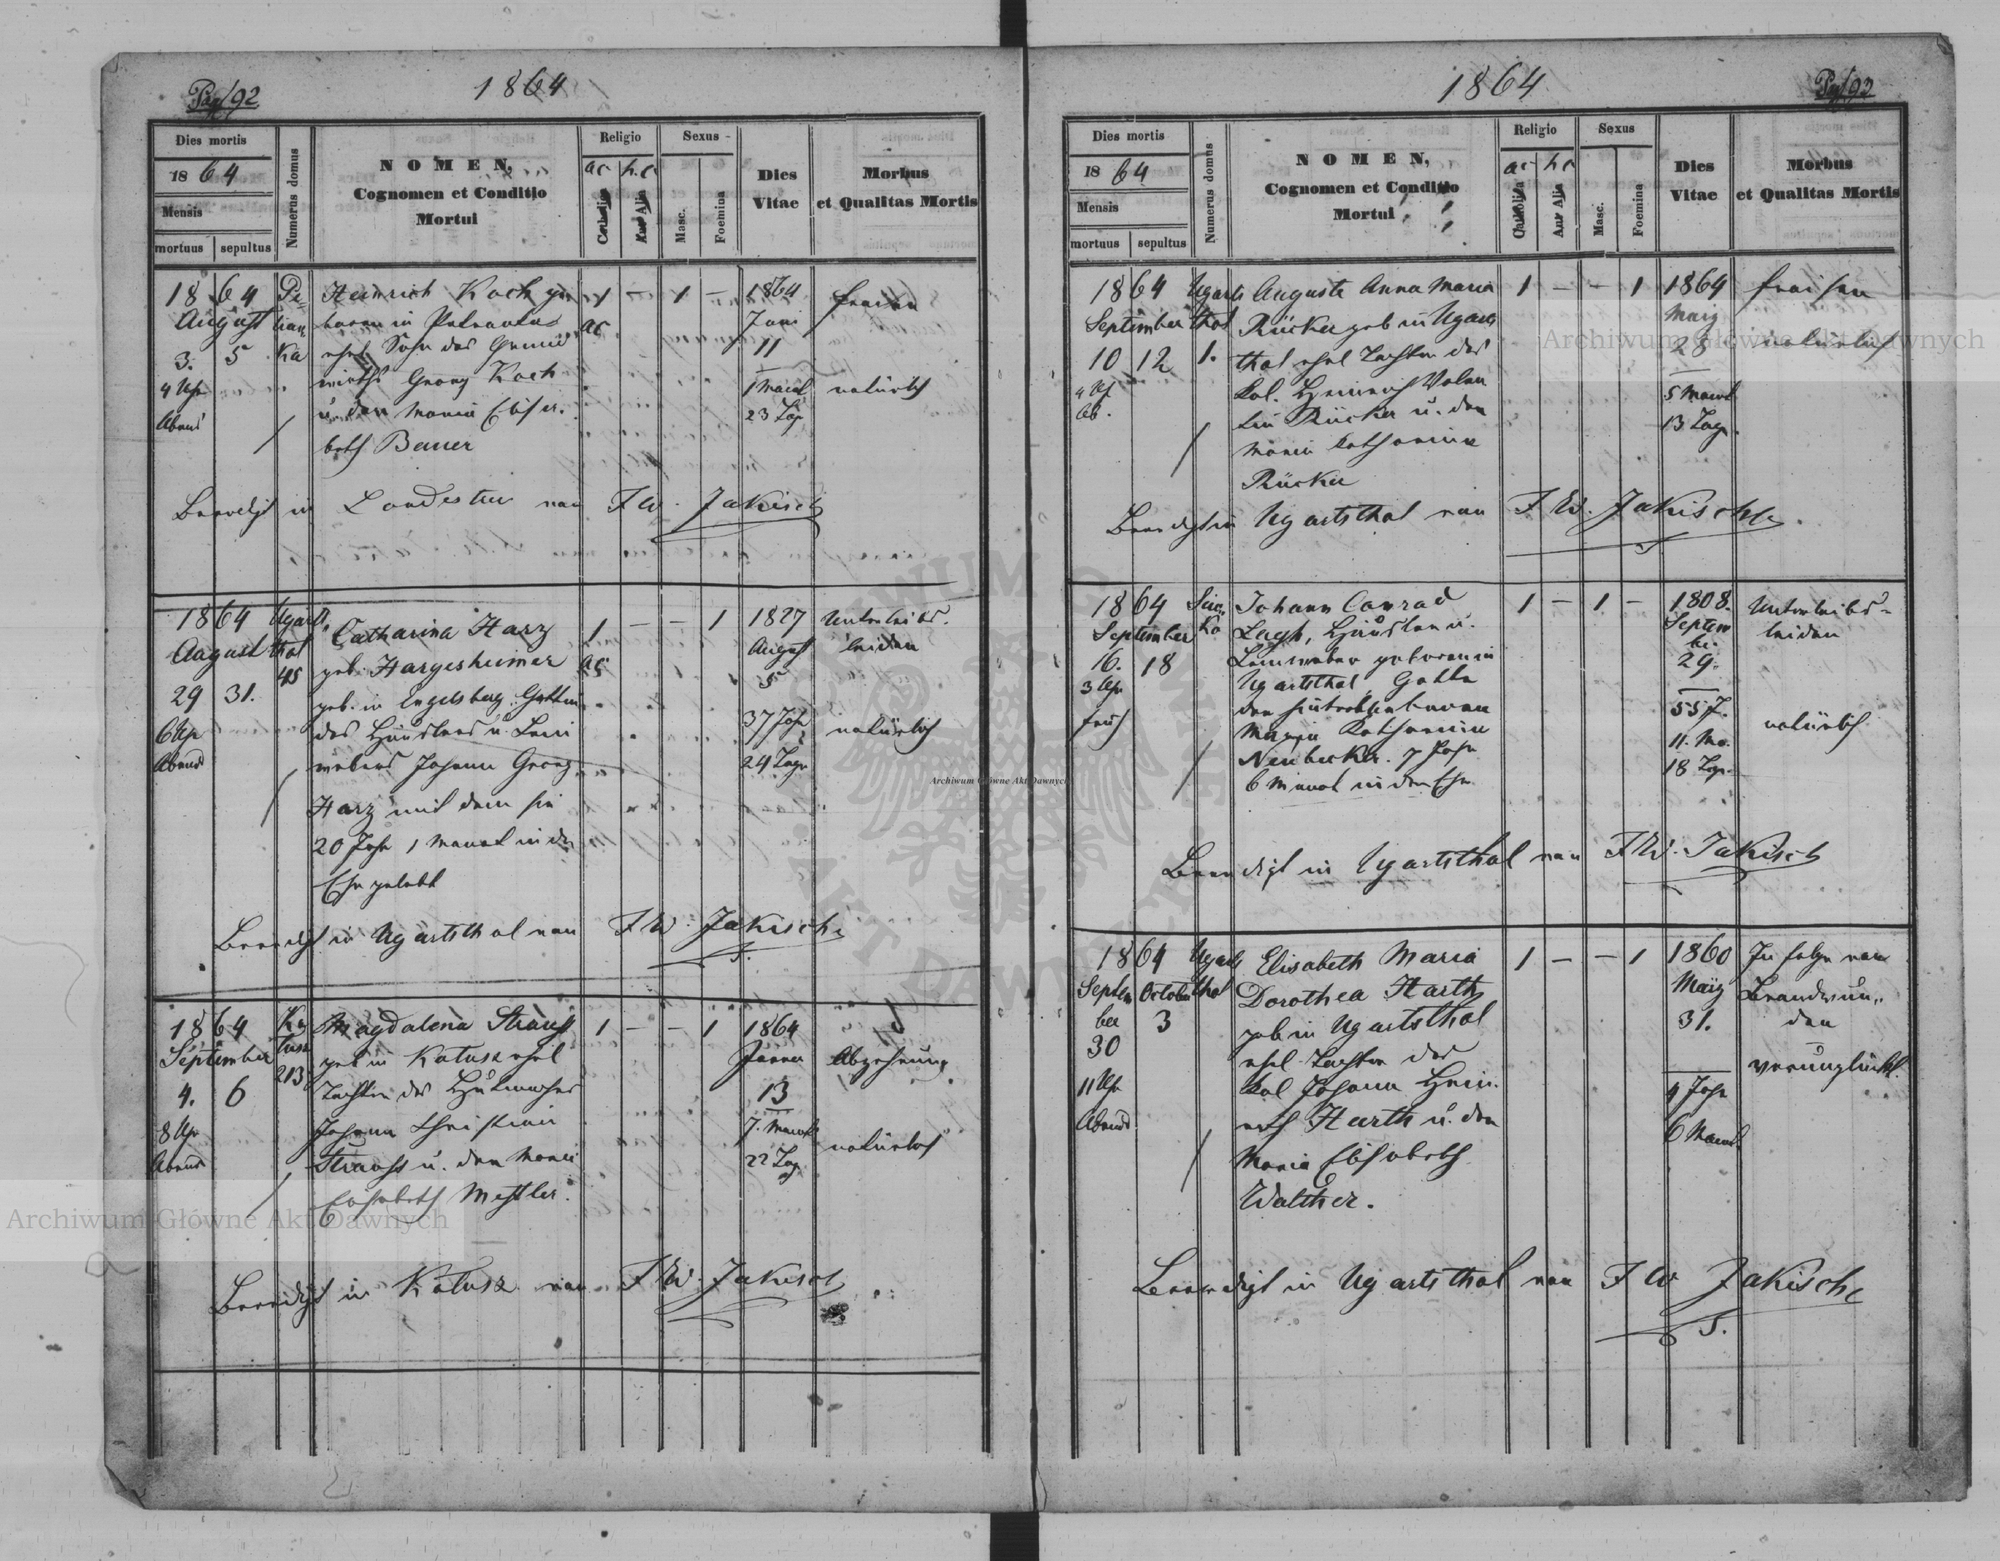 Pag 92
1864
Dies mortis
1864
Mensis
mortuus sepultus
Numerus domus
NOMEN,
Cognomen et Conditio
Mortui
Religio
ac h.c
Catholica
Aut Alia
Sexus
Masc.
Foemina
Dies
Vitae
Morbus
et Qualitas Mortis
1864
August
3. 5
4 Uhr
Abends
Heinrich Koch ge
boren in
ehel Sohn des
wirths Georg Koch
u. der Maria Elisa
beth Bauer
1 - 1 -
ac
1864
Juni
11
1 Monat
23 Tag
fraisen
natürlich
Beerdigt in Landestreu von F W. Jakisch
1864
August
29 31.
6 Uhr
Abends
Ugarts
thal
45
Catharina Harz
geb. Hargesheimer
geb. in Engelsberg Gattin
des Häuslers u. Lein
webers Johann Georg
Harz mit dem sie
20 Jahr 1 Monat in der
Ehe gelebt
1 - - 1
ac
1827
August
5
37 Jahr
24 Tage
Unterleibs-
leiden
natürlich
Beerdigt in Ugartsthal von F W. Jakisch
1864
September
4. 6
8 Uhr
Abends
Ka
tusz
213
Magdalena Strauss
geb in Katusz ehel
Tochter des Hutmacher
Johann Christian
Strauss u. der Maria
Elisabeth Metzler.
1 - - 1
1864
Jänner
13
7. Monat
22 Tag
Abzehrung
natürlich
Beerdigt in Katusz von F W. Jakisch
Pag 93
1864
Dies mortis
1864
Mensis
mortuus sepultus
Numerus domus
NOMEN,
Cognomen et Conditio
Mortui
Religio
ac h c
Catholica
Aut Alia
Sexus
Masc.
Foemina
Dies
Vitae
Morbus
et Qualitas Mortis
1864
September
10 12
4 Uhr
Ab.
Ugarts
thal
1.
Auguste Anna Maria
Rücker geb in Ugarts
thal ehel Tochter des
Kol. Heinrich Valen
tin Rücker u. der
Maria Katharina
Rücker
1 - - 1
1864
März
28
5 Monat
13 Tage
fraisen
natürlich
Beerdigt in Ugartsthal von F W. Jakisch
1864
September
16. 18
3 Uhr
früh
Johann Conrad
Häusler u.
Leinweber geboren in
Ugartsthal Gatte
der hinterbliebenen
Maria Katharina
Neubecker. 7 Jahr
6 Monat in der Ehe
1 - 1 -
1808.
Septem
ber
29.
55 J.
11. Mo.
18 Tage
Unterleibs-
leiden
natürlich
Beerdigt in Ugartsthal von F W. Jakisch
1864
Septem
ber
30
11 Uhr
Abends
October
3
Ugarts
thal
Elisabeth Maria
Dorothea Harth
geb in Ugartsthal
ehel Tochter des
Kol Johann Hein
rich Harth u. der
Maria Elisabeth
Walther.
1 - - 1
1860
März
31.
4 Jahr
6 Monat
In folge von
Brandwun
den
verunglückt
Beerdigt in Ugartsthal von F W Jakisch
Archiwum Główne Akt Dawnych
Archiwum Główne Akt Dawnych
Archiwum Główne Akt Dawnych